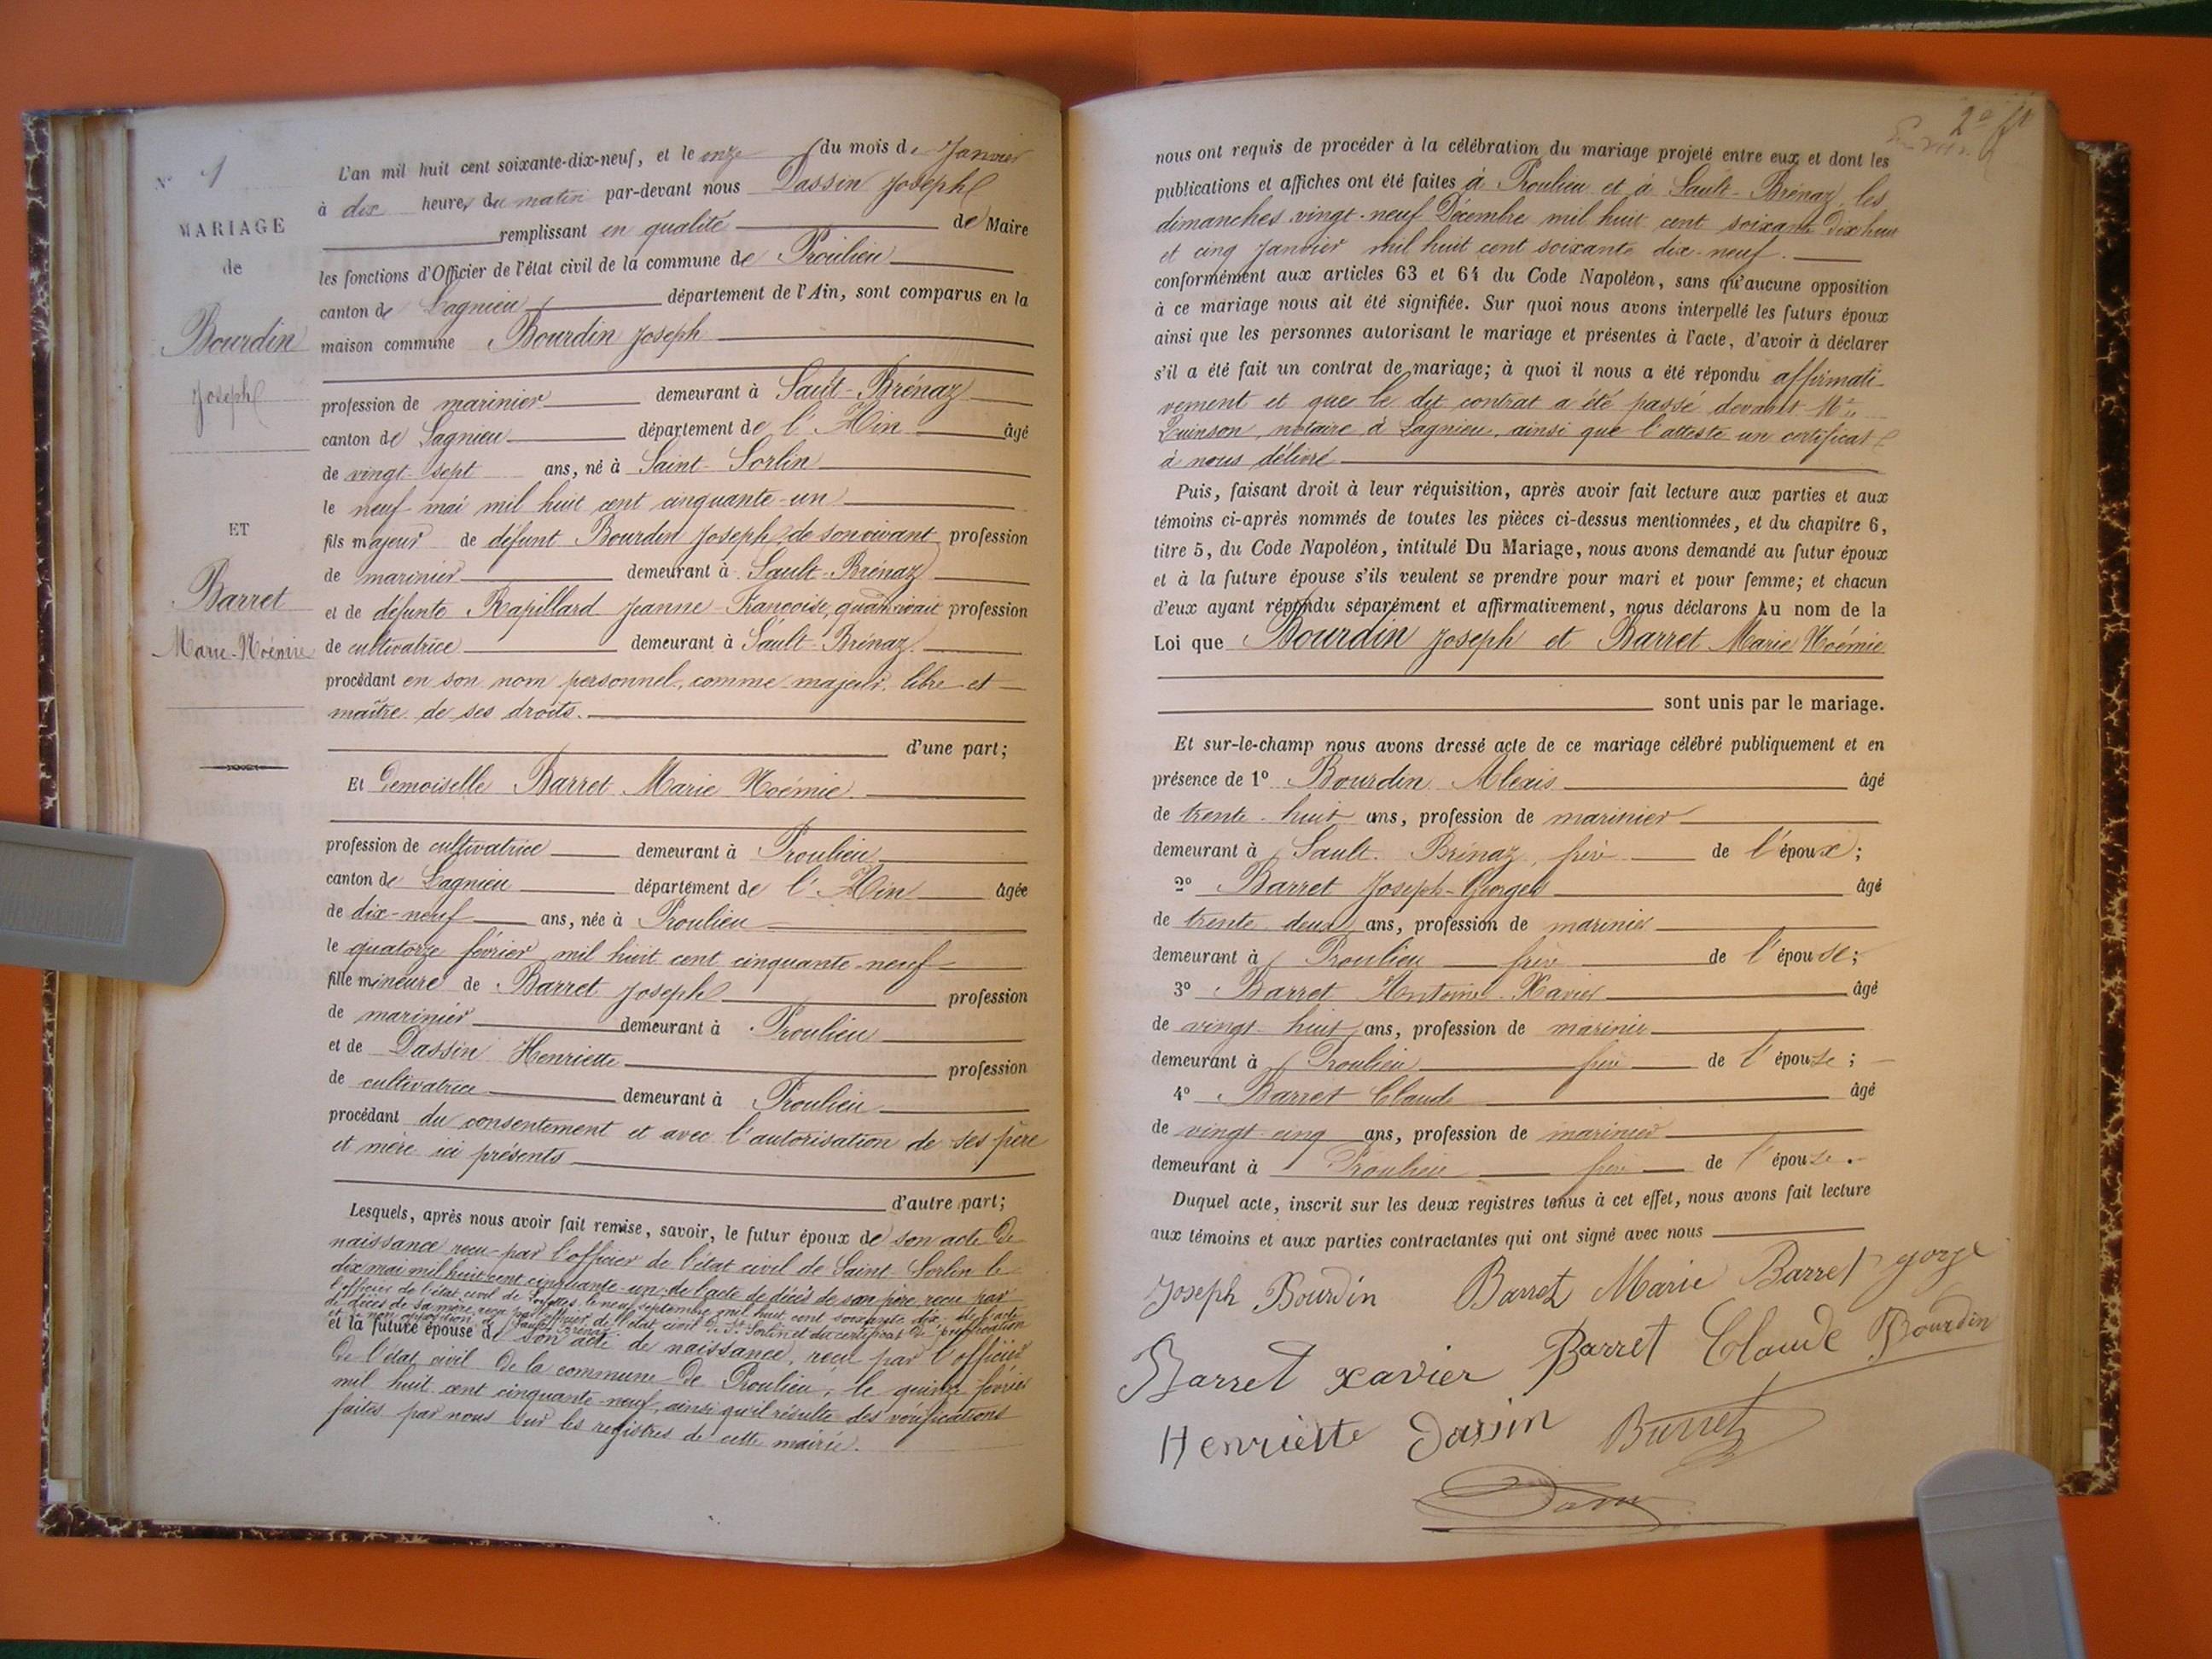 N° 1
MARIAGE
de
Bourdin
Joseph
ET
Barret
Marie-Noémie
L'an mil huit cent soixante-dix-neuf, et le onze du mois de Janvier
à dix heures du matin par-devant nous Dassin Joseph
remplissant en qualité de Maire
les fonctions d'Officier de l'état civil de la commune de Proulieu
canton de Lagnieu département de l'Ain, sont comparus en la
maison commune Bourdin Joseph
profession de marinier demeurant à Sault-Brénaz
canton de Lagnieu département de l'Ain âgé
de vingt-sept ans, né à Saint-Sorlin
le neuf mai mil huit cent cinquante-un
fils majeur de défunt Bourdin Joseph de son vivant profession
de marinier demeurant à Sault-Brénaz
et de défunte Rapillard Jeanne-Françoise, quand vivait profession
de cultivatrice demeurant à Sault-Brénaz
procédant en son nom personnel, comme majeur, libre et
maître de ses droits.
d'une part;
Et Demoiselle Barret Marie Noémie
profession de cultivatrice demeurant à Proulieu
canton de Lagnieu département de l'Ain âgée
de dix-neuf ans, née à Proulieu
le quatorze février mil huit cent cinquante-neuf
fille mineure de Barret Joseph profession
de marinier demeurant à Proulieu
et de Dassin Henriette profession
de cultivatrice demeurant à Proulieu
procédant du consentement et avec l'autorisation de ses père
et mère ici présents
d'autre part;
Lesquels, après nous avoir fait remise, savoir, le futur époux de son acte de
naissance reçu par l'officier de l'état civil de Saint-Sorlin le
dix mai mil huit cent cinquante-un, de l'acte de décès de son père, reçu par
l'officier de l'état civil de le neuf septembre mil huit cent soixante dix, de l'acte
de décès de sa mère, reçu par l'officier de l'état civil de St Sorlin et du certificat de publication
et de non opposition de Sault-Brénaz
et la future épouse de son acte de naissance, reçu par l'officier
de l'état civil de la commune de Proulieu, le quinze février
mil huit cent cinquante-neuf, ainsi qu'il résulte des vérifications
faites par nous sur les registres de cette mairie.
nous ont requis de procéder à la célébration du mariage projeté entre eux et dont les
publications et affiches ont été faites à Proulieu et à Sault-Brénaz, les
dimanches vingt-neuf Décembre mil huit cent soixante dix huit
et cinq Janvier mil huit cent soixante dix-neuf.
conformément aux articles 63 et 64 du Code Napoléon, sans qu'aucune opposition
à ce mariage nous ait été signifiée. Sur quoi nous avons interpellé les futurs époux
ainsi que les personnes autorisant le mariage et présentes à l'acte, d'avoir à déclarer
s'il a été fait un contrat de mariage; à quoi il nous a été répondu affirmati-
vement et que le dit contrat a été passé devant Me
Quinson, notaire à Lagnieu, ainsi que l'atteste un certificat
à nous délivré
Puis, faisant droit à leur réquisition, après avoir fait lecture aux parties et aux
témoins ci-après nommés de toutes les pièces ci-dessus mentionnées, et du chapitre 6,
titre 5, du Code Napoléon, intitulé Du Mariage, nous avons demandé au futur époux
et à la future épouse s'ils veulent se prendre pour mari et pour femme; et chacun
d'eux ayant répondu séparément et affirmativement, nous déclarons Au nom de la
Loi que Bourdin Joseph et Barret Marie Noémie
sont unis par le mariage.
Et sur-le-champ nous avons dressé acte de ce mariage célébré publiquement et en
présence de 1° Bourdin Alexis âgé
de trente-huit ans, profession de marinier
demeurant à Sault-Brénaz, frère de l'époux;
2° Barret Joseph-Georges âgé
de trente deux ans, profession de marinier
demeurant à Proulieu frère de l'épouse;
3° Barret Antoine-Xavier âgé
de vingt-huit ans, profession de marinier
demeurant à Proulieu frère de l'épouse;
4° Barret Claude âgé
de vingt-cinq ans, profession de marinier
demeurant à Proulieu frère de l'épouse.
Duquel acte, inscrit sur les deux registres tenus à cet effet, nous avons fait lecture
aux témoins et aux parties contractantes qui ont signé avec nous
Joseph Bourdin Barret Marie Barret gorge
Barret xavier Barret Claude Bourdin
Henriette Dassin Barret